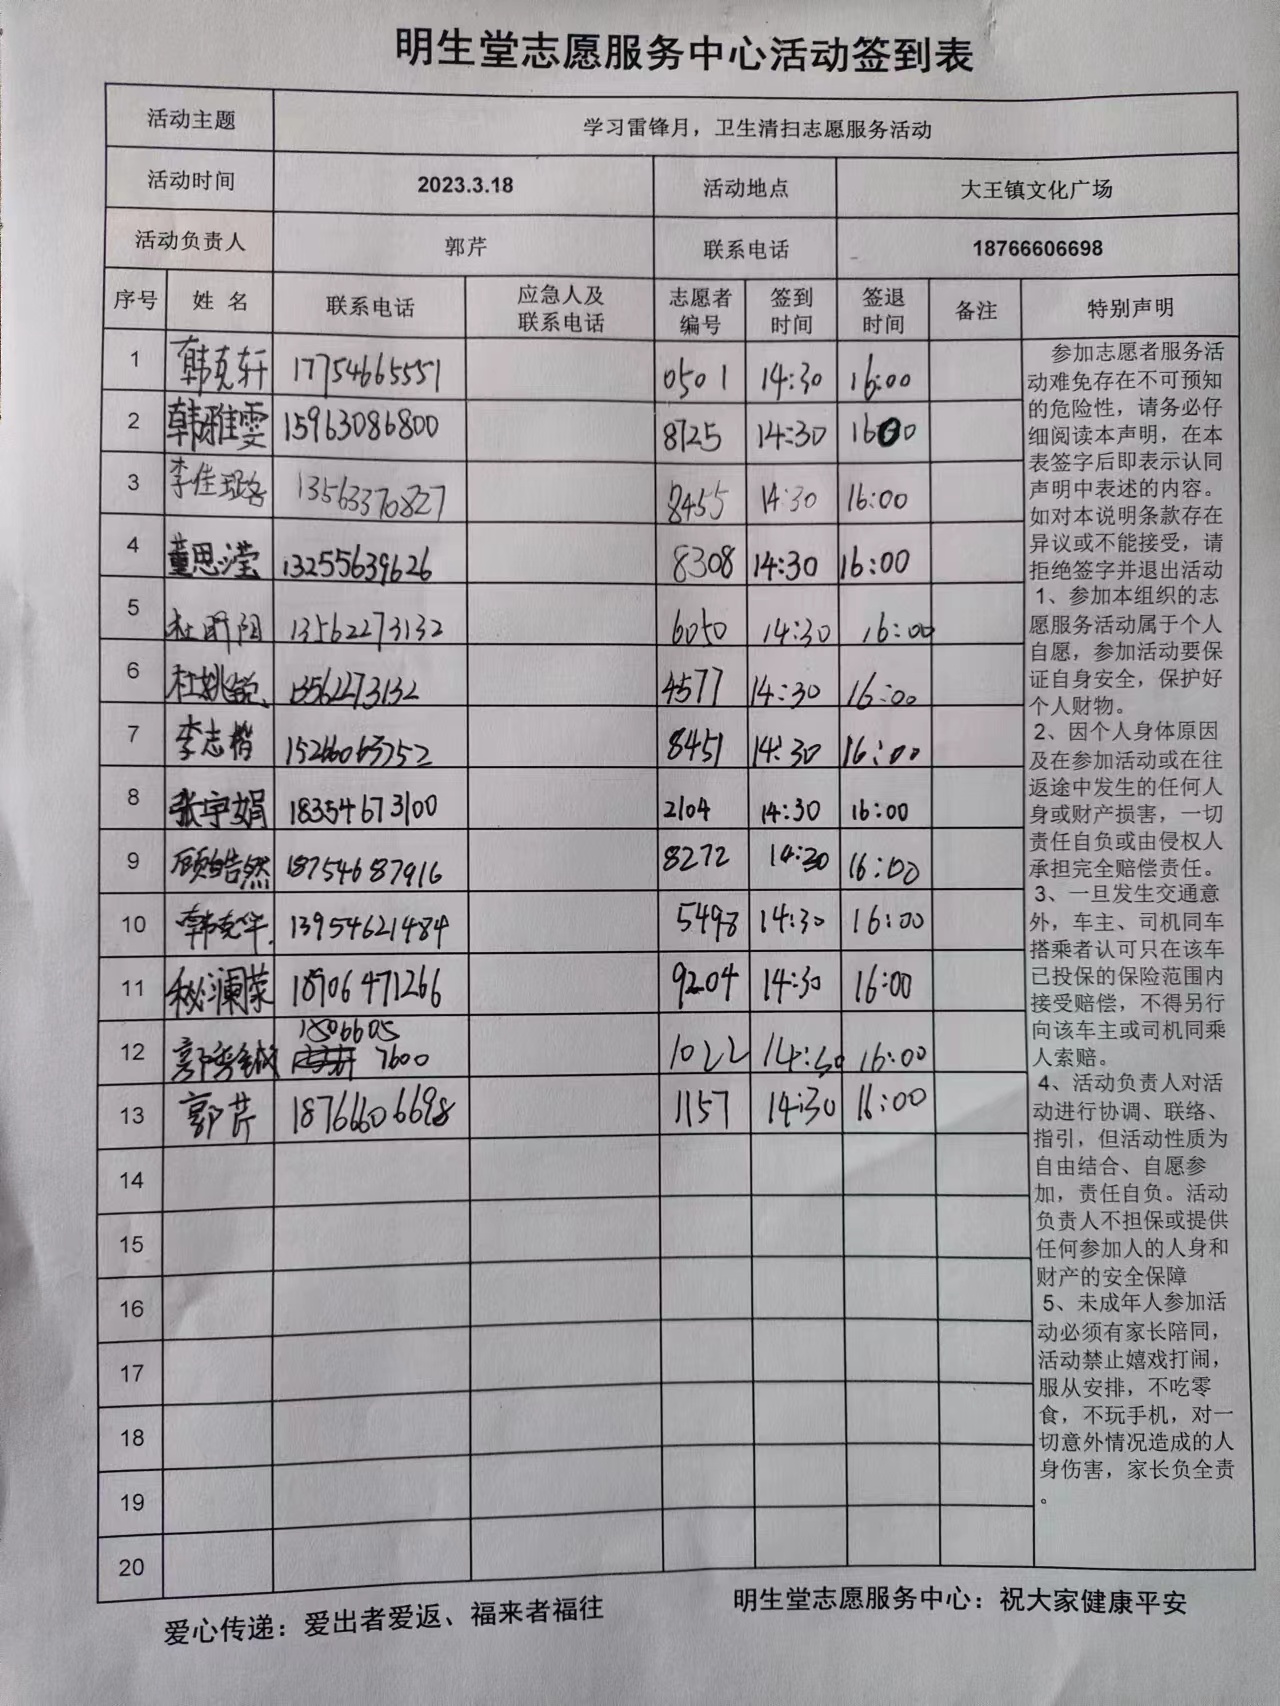 明生堂志愿服务中心活动签到表
活动主题 学习雷锋月，卫生清扫志愿服务活动
活动时间 2023.3.18 活动地点 大王镇文化广场
活动负责人 郭芹 联系电话 18766606698
序号 姓名 联系电话 应急人及联系电话 志愿者编号 签到时间 签退时间 备注 特别声明
1 韩克轩 17754665551 0501 14:30 16:00
2 韩雅雯 15963086800 8725 14:30 1600
3 李佳璐 13563370827 8455 14:30 16:00
4 董思滢 13255639626 8308 14:30 16:00
5 杜昕阳 13562273132 6050 14:30 16:00
6 13562273132 4577 14:30 16:00
7 李志楷 15266063752 8451 14:30 16:00
8 张宇娟 18354673100 2104 14:30 16:00
9 顾皓然 18754687916 8272 14:30 16:00
10 韩克华 13954621484 5498 14:30 16:00
11 秘澜菜 18906471266 9204 14:30 16:00
12 1506605 7600 1022 14:30 16:00
13 郭芹 18766606698 1157 14:30 16:00
14
15
16
17
18
19
20
参加志愿者服务活
动难免存在不可预知
的危险性，请务必仔
细阅读本声明，在本
表签字后即表示认同
声明中表述的内容。
如对本说明条款存在
异议或不能接受，请
拒绝签字并退出活动
1、参加本组织的志
愿服务活动属于个人
自愿，参加活动要保
证自身安全，保护好
个人财物。
2、因个人身体原因
及在参加活动或在往
返途中发生的任何人
身或财产损害，一切
责任自负或由侵权人
承担完全赔偿责任。
3、一旦发生交通意
外，车主、司机同车
搭乘者认可只在该车
已投保的保险范围内
接受赔偿，不得另行
向该车主或司机同乘
人索赔。
4、活动负责人对活
动进行协调、联络、
指引，但活动性质为
自由结合、自愿参
加，责任自负。活动
负责人不担保或提供
任何参加人的人身和
财产的安全保障
5、未成年人参加活
动必须有家长陪同，
活动禁止嬉戏打闹，
服从安排，不吃零
食，不玩手机，对一
切意外情况造成的人
身伤害，家长负全责
。
爱心传递：爱出者爱返、福来者福往 明生堂志愿服务中心：祝大家健康平安